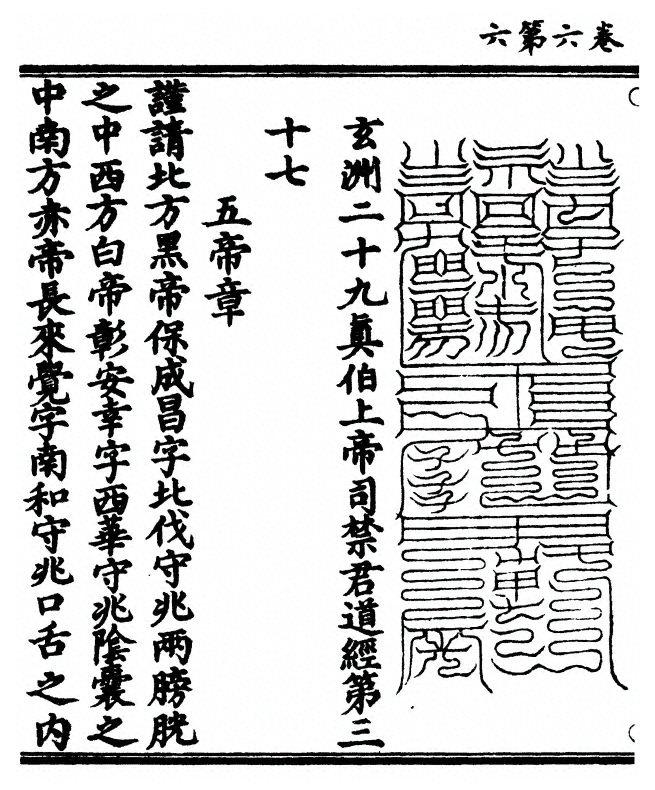 六第六卷
玄洲二十九眞伯上帝司禁君道經第三
十七
五帝章
謹請北方黑帝保成昌字北伐守兆兩膀胱
之中西方白帝彰安幸字西華守兆陰囊之
中南方赤帝長來覺字南和守兆口舌之内